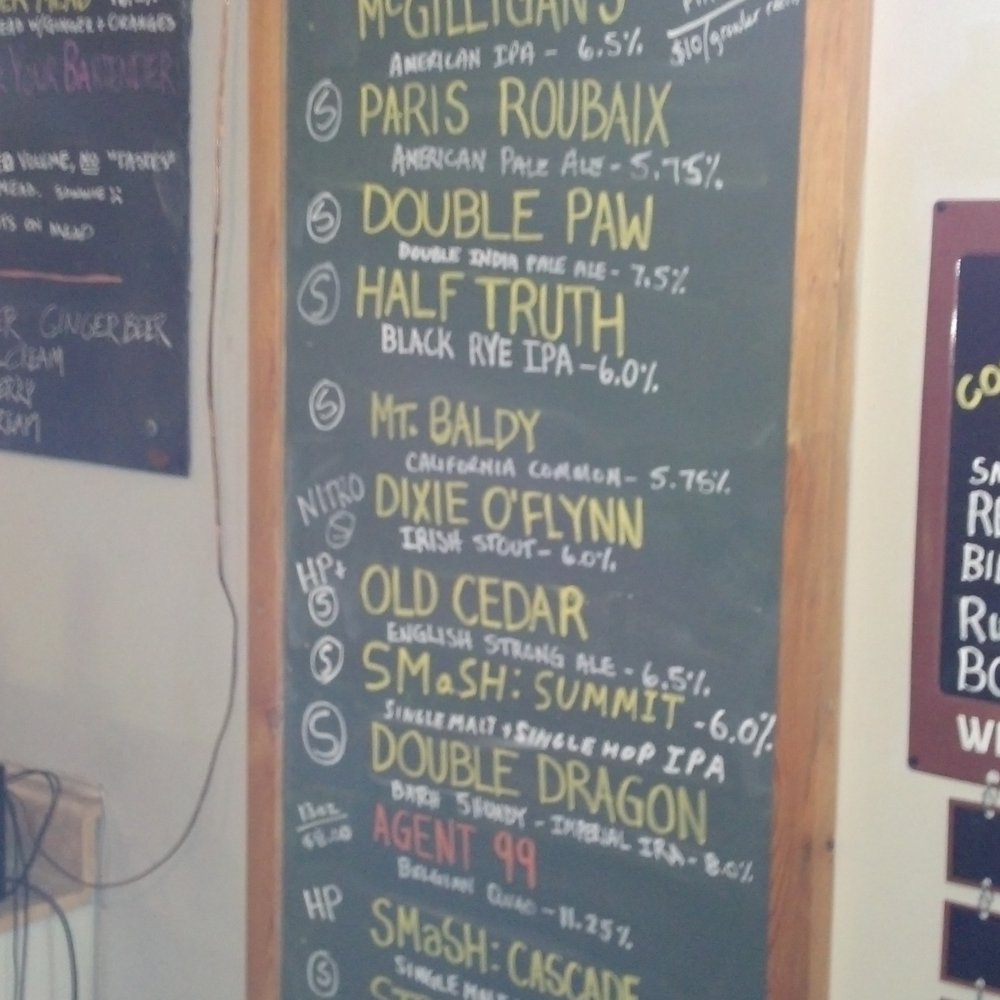 GINGER & ORANGES
YOUR BARTENDER
VOLUME, NO "TASTES"
ON MEAD
GINGERBEER
CREAM
McGILLIGAN'S
AMERICAN IPA - 6.5%
$10/growler
S PARIS ROUBAIX
AMERICAN PALE ALE - 5.75%
S DOUBLE PAW
DOUBLE INDIA PALE ALE - 7.5%
S HALF TRUTH
BLACK RYE IPA - 6.0%
S MT. BALDY
CALIFORNIA COMMON - 5.75%
NITRO S DIXIE O'FLYNN
IRISH STOUT - 6.0%
HP+ S OLD CEDAR
ENGLISH STRONG ALE - 6.5%
S SMaSH: SUMMIT - 6.0%
SINGLE MALT + SINGLE HOP IPA
S DOUBLE DRAGON
IMPERIAL IRA - 8.0%
AGENT 99
BELGIAN QUAD - 11.25%
HP SMaSH: CASCADE
S SINGLE MALT
CO
BO